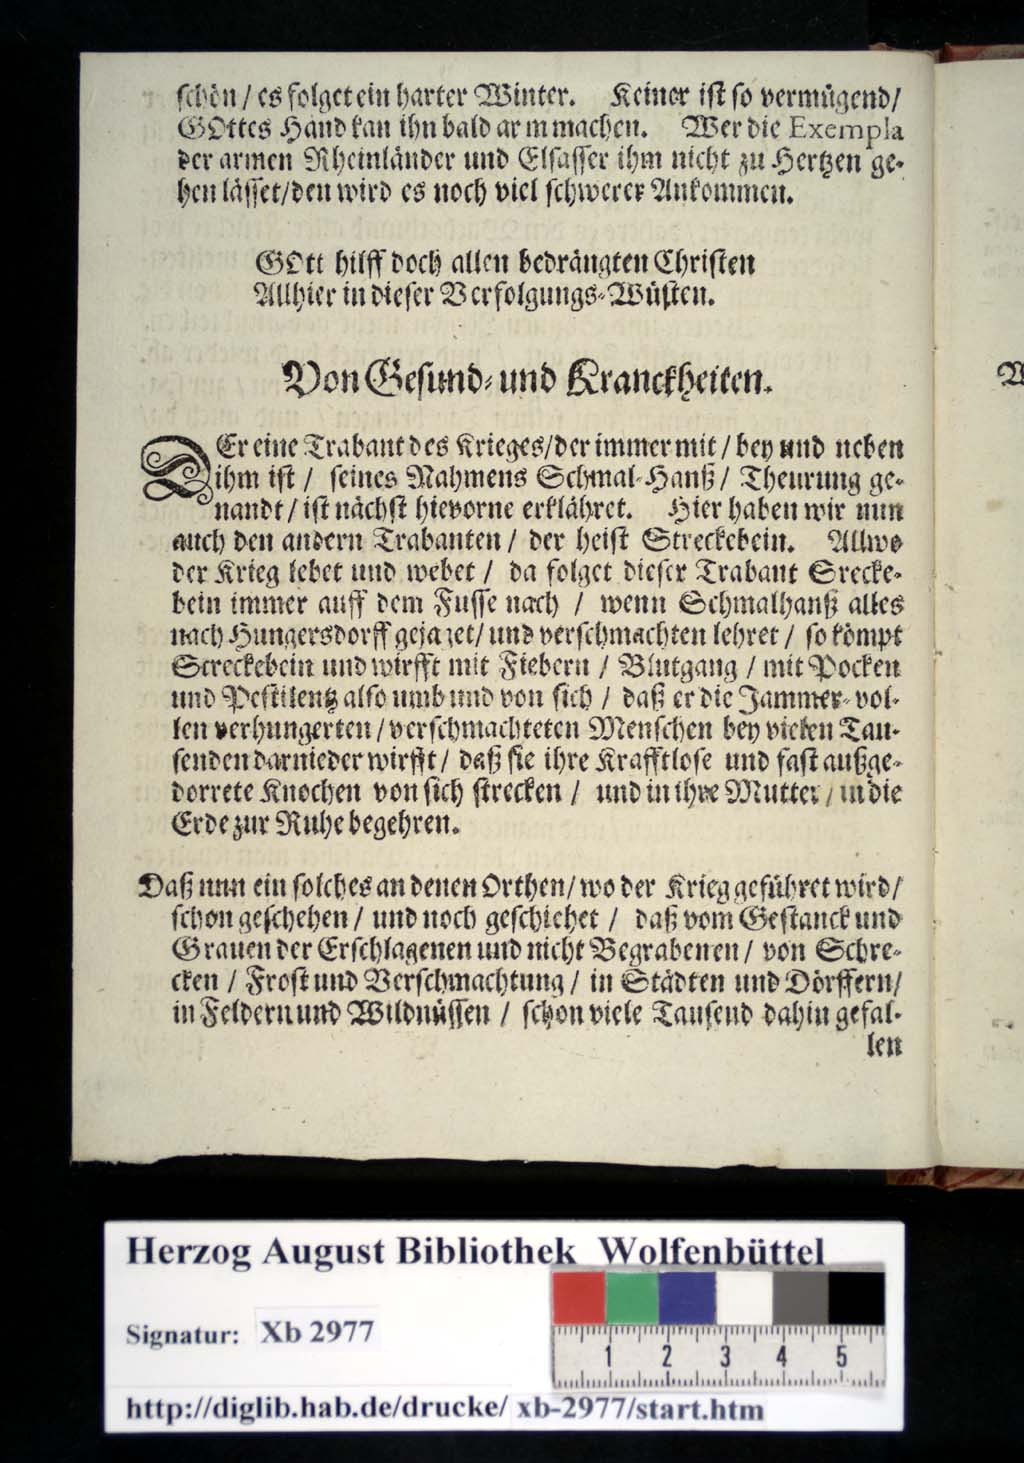 schön / es folget ein harter Winter. Keiner ist so vermügend /
GOttes Hand kan ihn bald arm machen. Wer die Exempla
der armen Rheinländer und Elsasser ihm nicht zu Hertzen ge-
hen lässet / den wird es noch viel schwerer Ankommen.
GOtt hilff doch allen bedrängten Christen
Allhier in dieser Verfolgungs-Wüsten.
Von Gesund- und Kranckheiten.
DEr eine Trabant des Krieges / der immer mit / bey und neben
ihm ist / seines Nahmens Schmal-Hanß / Theurung ge-
nandt / ist nächst hievorne erklähret. Hier haben wir nun
auch den andern Trabanten / der heist Streckebein. Allwo
der Krieg lebet und webet / da folget dieser Trabant Srecke-
bein immer auff dem Fusse nach / wenn Schmalhanß alles
nach Hungersdorff gejaget / und verschmachten lehret / so kömpt
Streckebein und wirfft mit Fiebern / Blutgang / mit Pocken
und Pestilentz also umb und von sich / daß er die Jammer-vol-
len verhungerten / verschmachteten Menschen bey vielen Tau-
senden darnieder wirfft / daß sie ihre Krafftlose und fast außge-
dorrete Knochen von sich strecken / und in ihre Mutter / in die
Erde zur Ruhe begehren.
Daß nun ein solches an denen Orthen / wo der Krieg geführet wird /
schon geschehen / und noch geschiehet / daß vom Gestanck und
Grauen der Erschlagenen und nicht Begrabenen / von Schre-
cken / Frost und Verschmachtung / in Städten und Dörffern /
in Feldern und Wildnüssen / schon viele Tausend dahin gefal-
len
Herzog August Bibliothek Wolfenbüttel
Signatur: Xb 2977
1 2 3 4 5
http://diglib.hab.de/drucke/ xb-2977/start.htm